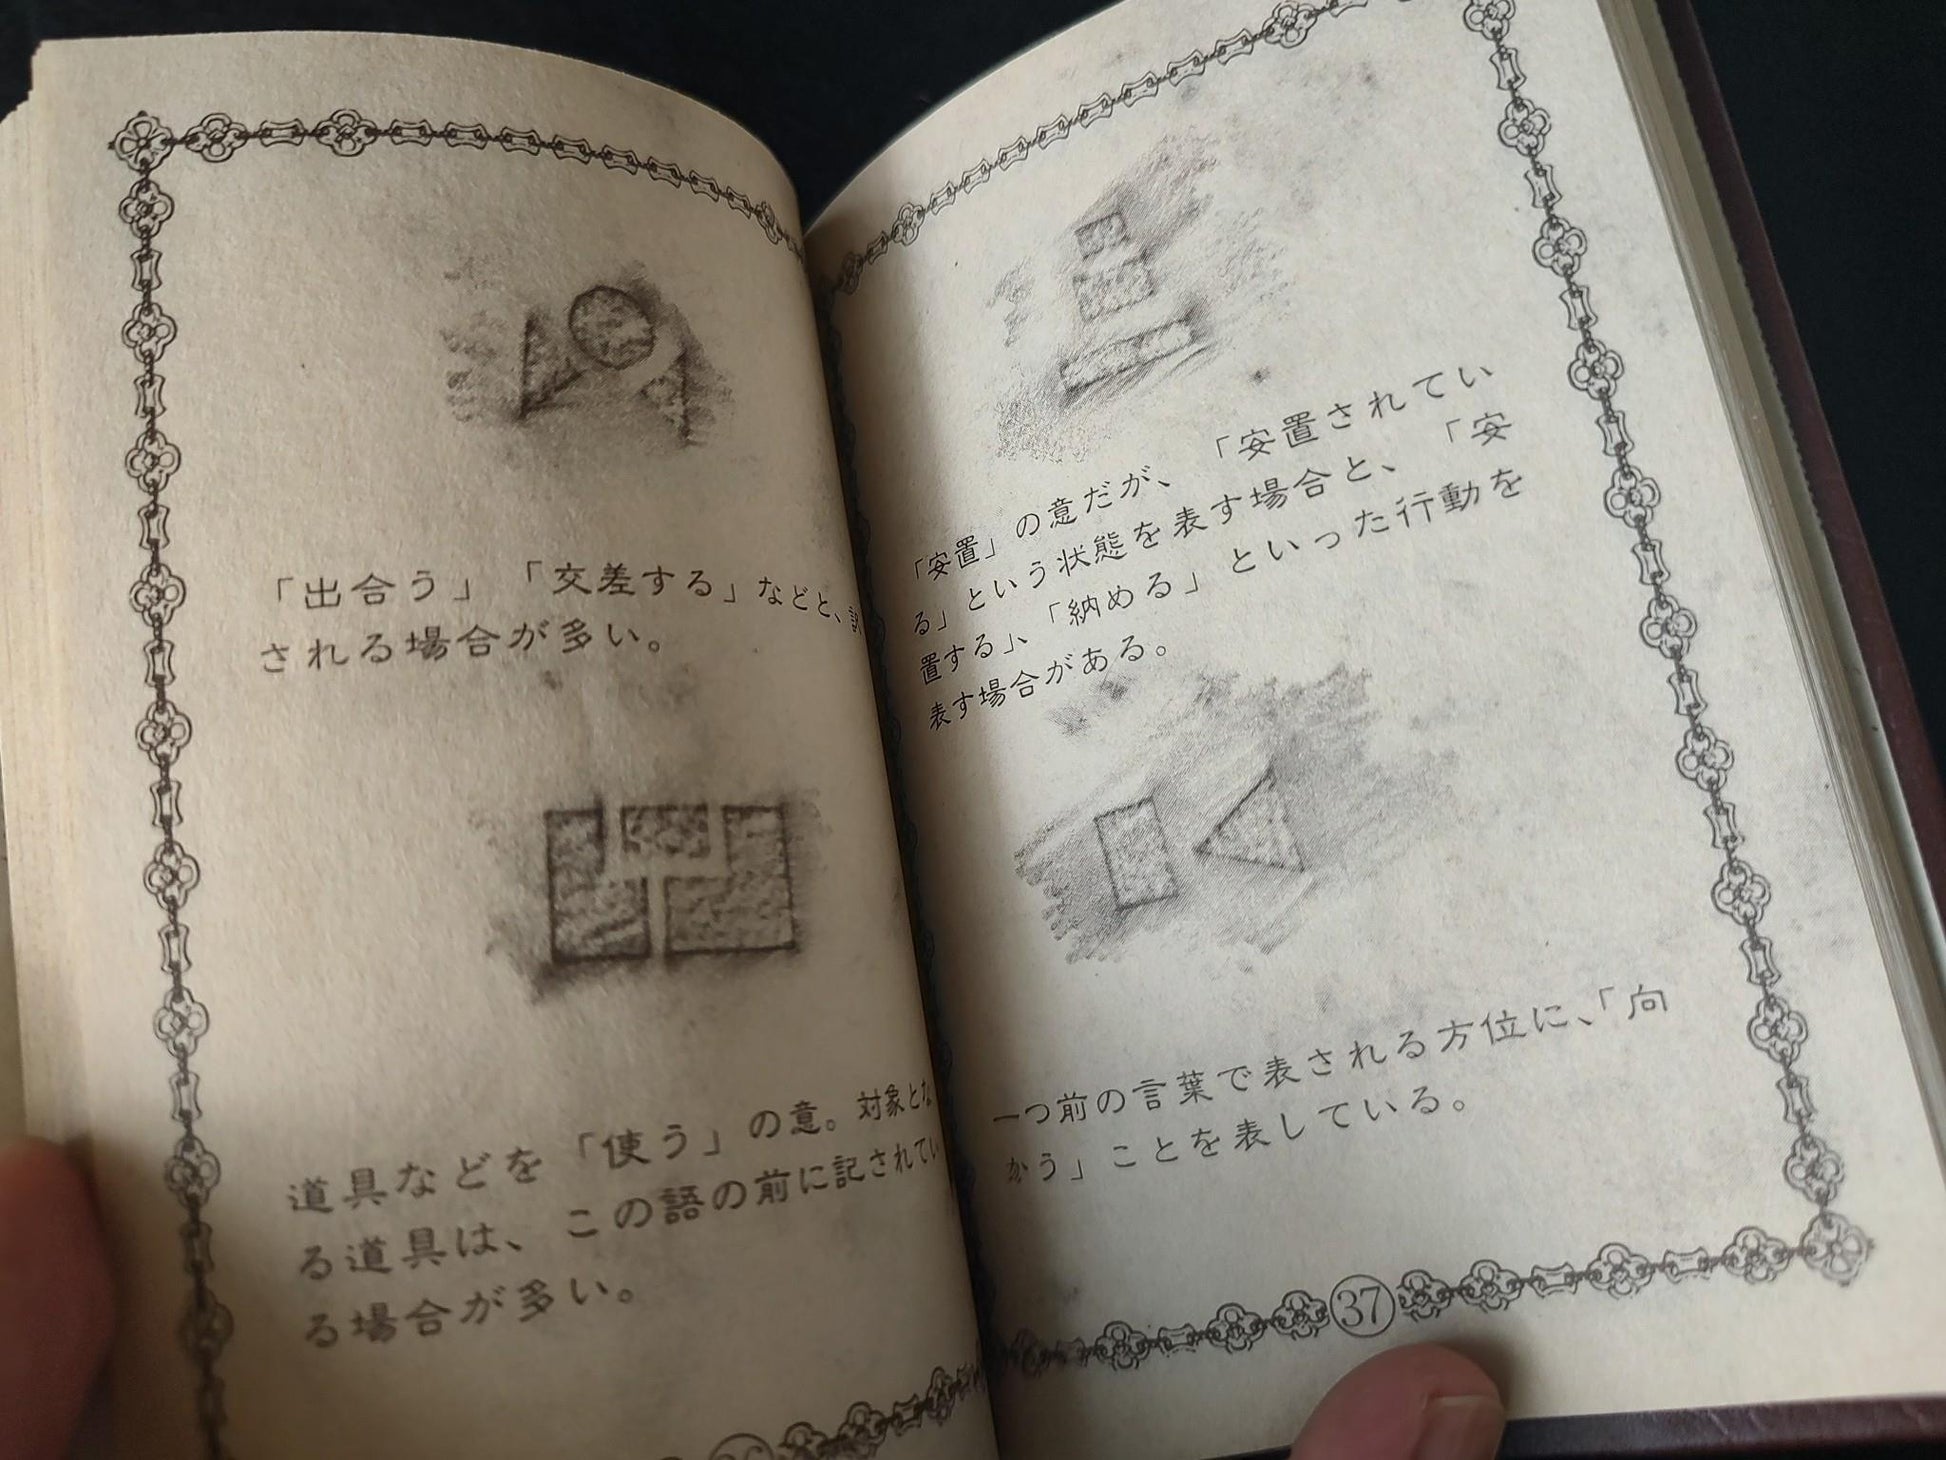 「出合う」「交差する」などと、訳
される場合が多い。
道具などを「使う」の意。対象とな
る道具は、この語の前に記されてい
る場合が多い。
「安置」の意だが、「安置されてい
る」という状態を表す場合と、「安
置する」、「納める」といった行動を
表す場合がある。
一つ前の言葉で表される方位に、「向
かう」ことを表している。
37